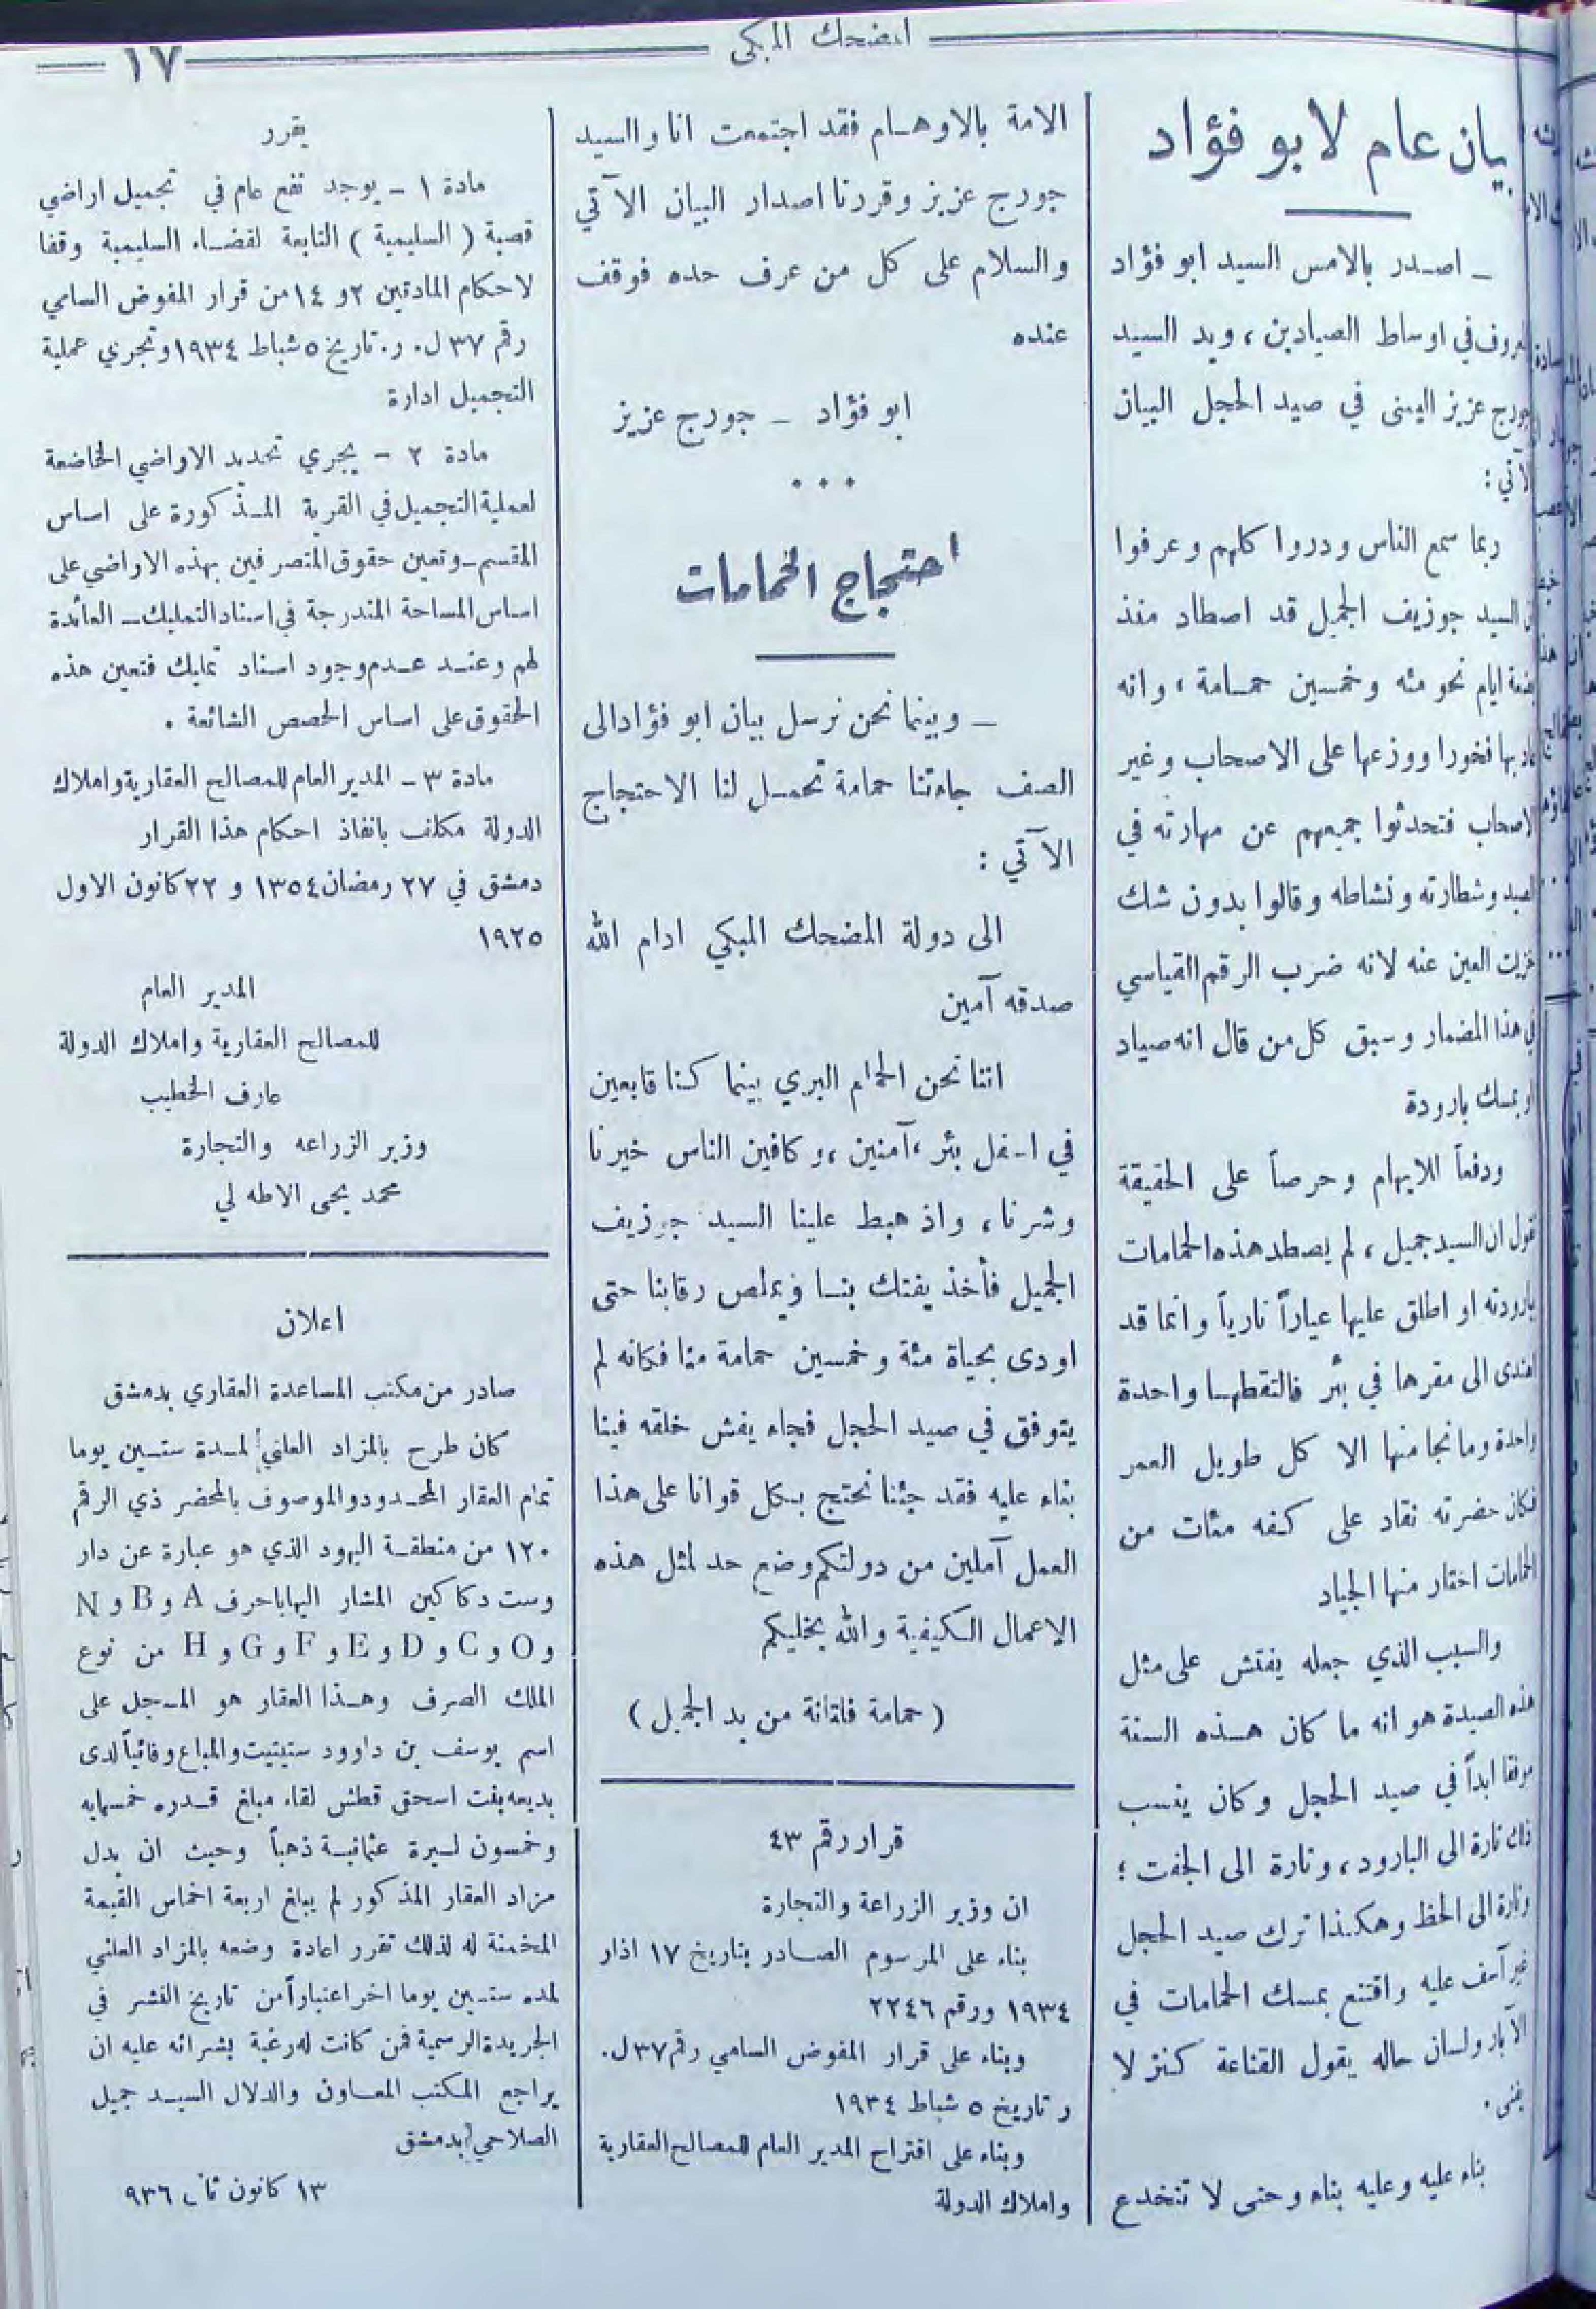 المضحك المبكي
١٧
بيان عام لابو فؤاد
ـ اصدر بالامس السيد ابو فؤاد
المعروف في اوساط الصيادين ، ويد السيد
جورج عزيز اليمنى في صيد الحجل البيان
الآتي :
ربما سمع الناس ودروا كلهم وعرفوا
ان السيد جوزيف الجميل قد اصطاد منذ
بضعة ايام نحو مئه وخمسين حمامة ، وانه
عاد بها فخورا ووزعها على الاصحاب وغير
الاصحاب فتحدثوا جميعهم عن مهارته في
الصيد وشطارته ونشاطه وقالوا بدون شك
خزيت العين عنه لانه ضرب الرقم القياسي
في هذا المضمار وسبق كل من قال انه صياد
او يمسك بارودة
ودفعاً للايهام وحرصاً على الحقيقة
نقول ان السيد جميل ، لم يصطد هذه الحمامات
ببارودته او اطلق عليها عياراً نارياً وانما قد
اهتدى الى مقرها في بئر فالتقطها واحدة
واحدة وما نجا منها الا كل طويل العمر
فكان حضرته نقاد على كفه مئات من
الحمامات اختار منها الجياد
والسبب الذي جعله يفتش على مثل
هذه الصيدة هو انه ما كان هذه السنة
موفقا ابداً في صيد الحجل وكان ينسب
ذلك تارة الى البارود ، وتارة الى الجفت ؛
وتارة الى الحظ وهكذا ترك صيد الحجل
غير آسف عليه واقتنع بمسك الحمامات في
الآبار ولسان حاله يقول القناعة كنز لا
يفنى .
بناء عليه وعليه بناء وحتى لا تنخدع
الامة بالاوهام فقد اجتمعت انا والسيد
جورج عزيز وقررنا اصدار البيان الآتي
والسلام على كل من عرف حده فوقف
عنده
ابو فؤاد ـ جورج عزيز
• • •
احتجاج الحمامات
ـ وبينما نحن نرسل بيان ابو فؤاد الى
الصف جاءتنا حمامة تحمل لنا الاحتجاج
الآتي :
الى دولة المضحك المبكي ادام الله
صدقه آمين
اننا نحن الحمام البري بينما كنا قابعين
في اسفل بئر ، آمنين ، وكافين الناس خيرنا
وشرنا ، واذ هبط علينا السيد جوزيف
الجميل فأخذ يفتك بنا ويملص رقابنا حتى
اودى بحياة مئة وخمسين حمامة منا فكانه لم
يتوفق في صيد الحجل فجاء يفش خلقه فينا
بناء عليه فقد جئنا نحتج بكل قوانا على هذا
العمل آملين من دولتكم وضع حد لمثل هذه
الاعمال الكيفية والله يخليكم
( حمامة فلتانة من يد الجميل )
قرار رقم ٤٣
ان وزير الزراعة والتجارة
بناء على المرسوم الصادر بتاريخ ١٧ اذار
١٩٣٤ ورقم ٢٢٤٦
وبناء على قرار المفوض السامي رقم ٣٧ ل.
ر تاريخ ٥ شباط ١٩٣٤
وبناء على اقتراح المدير العام للمصالح العقارية
واملاك الدولة
يقرر
مادة ١ ـ يوجد نفع عام في تجميل اراضي
قصبة ( السليمية ) التابعة لقضاء السليمية وقفا
لاحكام المادتين ٢ و ١٤ من قرار المفوض السامي
رقم ٣٧ ل. ر. تاريخ ٥ شباط ١٩٣٤ وتجري عملية
التجميل ادارة
مادة ٢ ـ يجري تحديد الاراضي الخاضعة
لعملية التجميل في القرية المذكورة على اساس
المقسم ـ وتعين حقوق المتصرفين بهذه الاراضي على
اساس المساحة المندرجة في اسناد التمليك ـ العائدة
لهم وعند عدم وجود اسناد تمليك فتعين هذه
الحقوق على اساس الحصص الشائعة .
مادة ٣ ـ المدير العام للمصالح العقارية واملاك
الدولة مكلف بانفاذ احكام هذا القرار
دمشق في ٢٧ رمضان ١٣٥٤ و ٢٢ كانون الاول
١٩٢٥
المدير العام
للمصالح العقارية واملاك الدولة
عارف الخطيب
وزير الزراعه والتجارة
محمد يحى الاطه لي
اعلان
صادر من مكتب المساعدة العقاري بدمشق
كان طرح بالمزاد العلني لمدة ستين يوما
تمام العقار المحدود والموصوف بالمحضر ذي الرقم
١٢٠ من منطقة اليهود الذي هو عبارة عن دار
وست دكاكين المشار اليها باحرف A و B و N
و O و C و D و E و F و G و H من نوع
الملك الصرف وهذا العقار هو المسجل على
اسم يوسف بن داوود ستيتيت والمباع وفائياً لدى
بديعه بنت اسحق قطش لقاء مبلغ قدره خمسمايه
وخمسون ليرة عثمانية ذهباً وحيث ان بدل
مزاد العقار المذكور لم يبلغ اربعة اخماس القيمة
المخمنة له لذلك تقرر اعادة وضعه بالمزاد العلني
لمده ستين يوما اخر اعتباراً من تاريخ النشر في
الجريدة الرسمية فمن كانت له رغبة بشرائه عليه ان
يراجع المكتب المعاون والدلال السيد جميل
الصلاحي بدمشق
١٣ كانون ثاني ٩٣٦